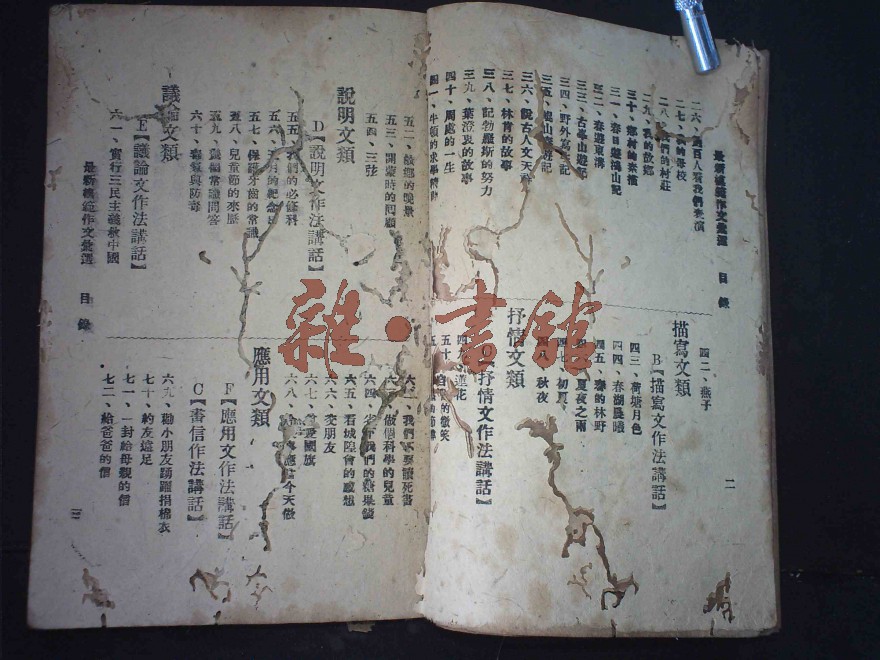 最新模範作文彙選 目錄
二
二六、百人看我們表演
二七、我的母校
二八、我們的村莊
二九、我的故鄉
三十、鄉村的素描
三一、春日遊桃山記
三二、春遊東溝
三三、古峯山遊記
三四、野外寫生記
三五、山遊記
三六、說古人文天祥
三七、林肯的故事
三八、記勃羅斯的努力
三九、葉澄衷的故事
四十、周處的一生
四一、牛頓的求學精神
描寫文類
B【描寫文作法講話】
四二、燕子
四三、荷塘月色
四四、春湖晨曦
四五、春的林野
夏夜之雨
四七、初夏
四八、秋夜
抒情文類
【抒情文作法講話】
四九、蓮花
五十、自的微笑
五二、故鄉的晚景
五三、開蒙時的回顧
五四、三弦
說明文類
D【說明文作法講話】
五五、我們的必修科
五六、五月的紀念日
五七、保護牙齒的常識
五八、兒童節的來歷
五九、常識問答
六十、毒氣與防毒
議論文類
E【議論文作法講話】
六一、實行三民主義救中國
六二、我們不要讀死書
六三、做個科學的兒童
六四、我們的糖果錢
六五、石城陸會的感想
六六、交朋友
六七、愛國旗
六八、應當今天做
應用文類
F【應用文作法講話】
G【書信作法講話】
六九、勸小朋友踴躍捐棉衣
七十、約友遠足
七一、一封給母親的信
七二、給爸爸的信
最新模範作文彙選 目錄
三
雜·書館